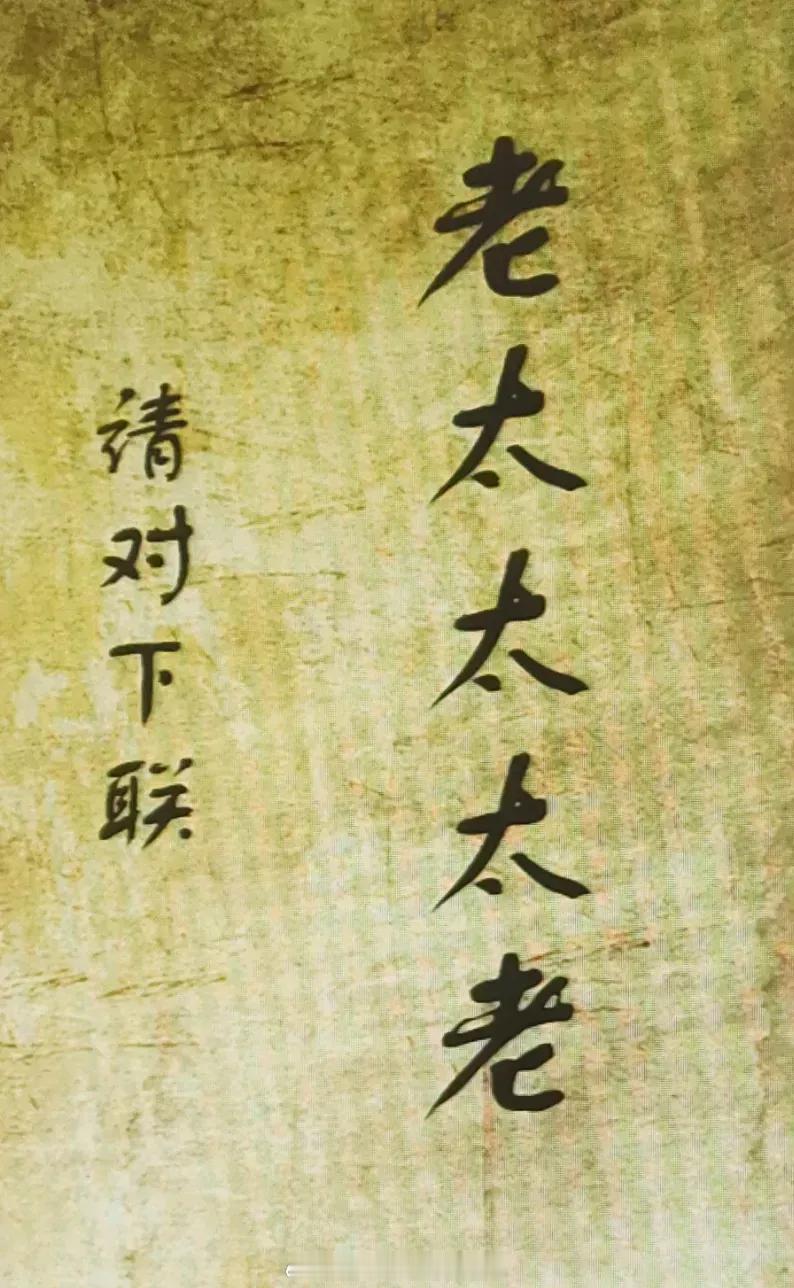 老太太太老
请对下联